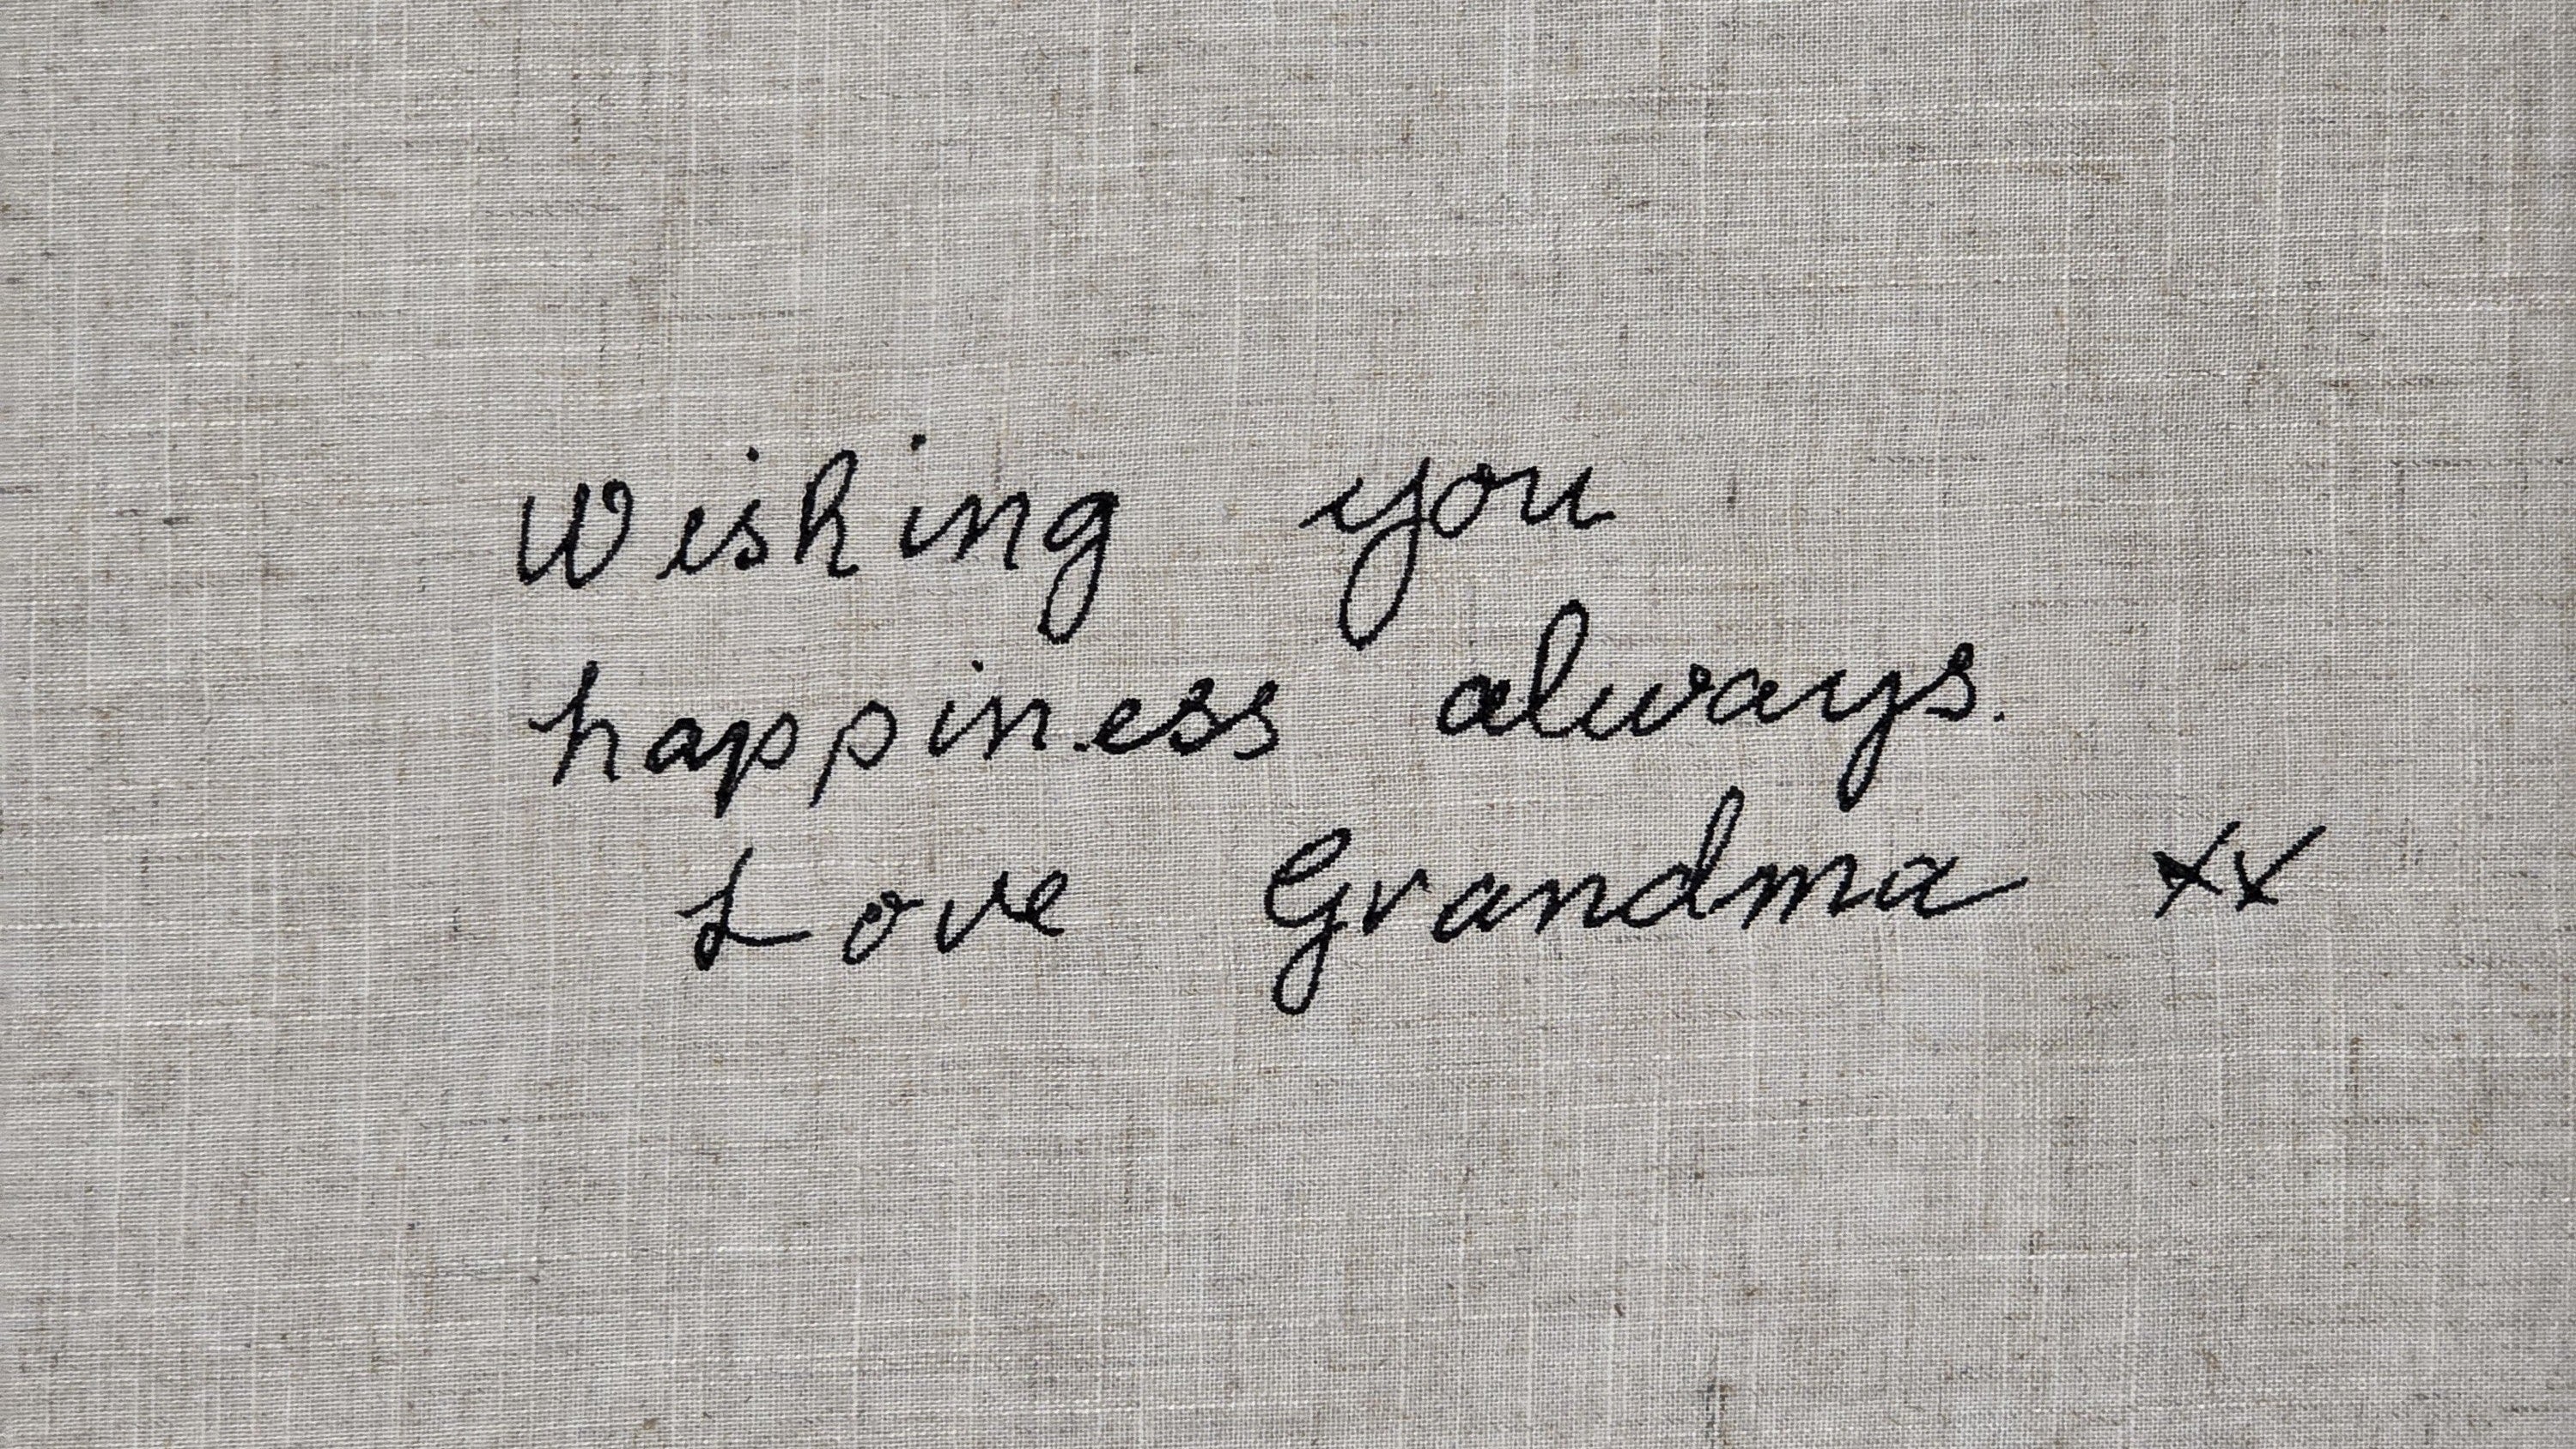 Wishing you
happiness always.
Love Grandma xx